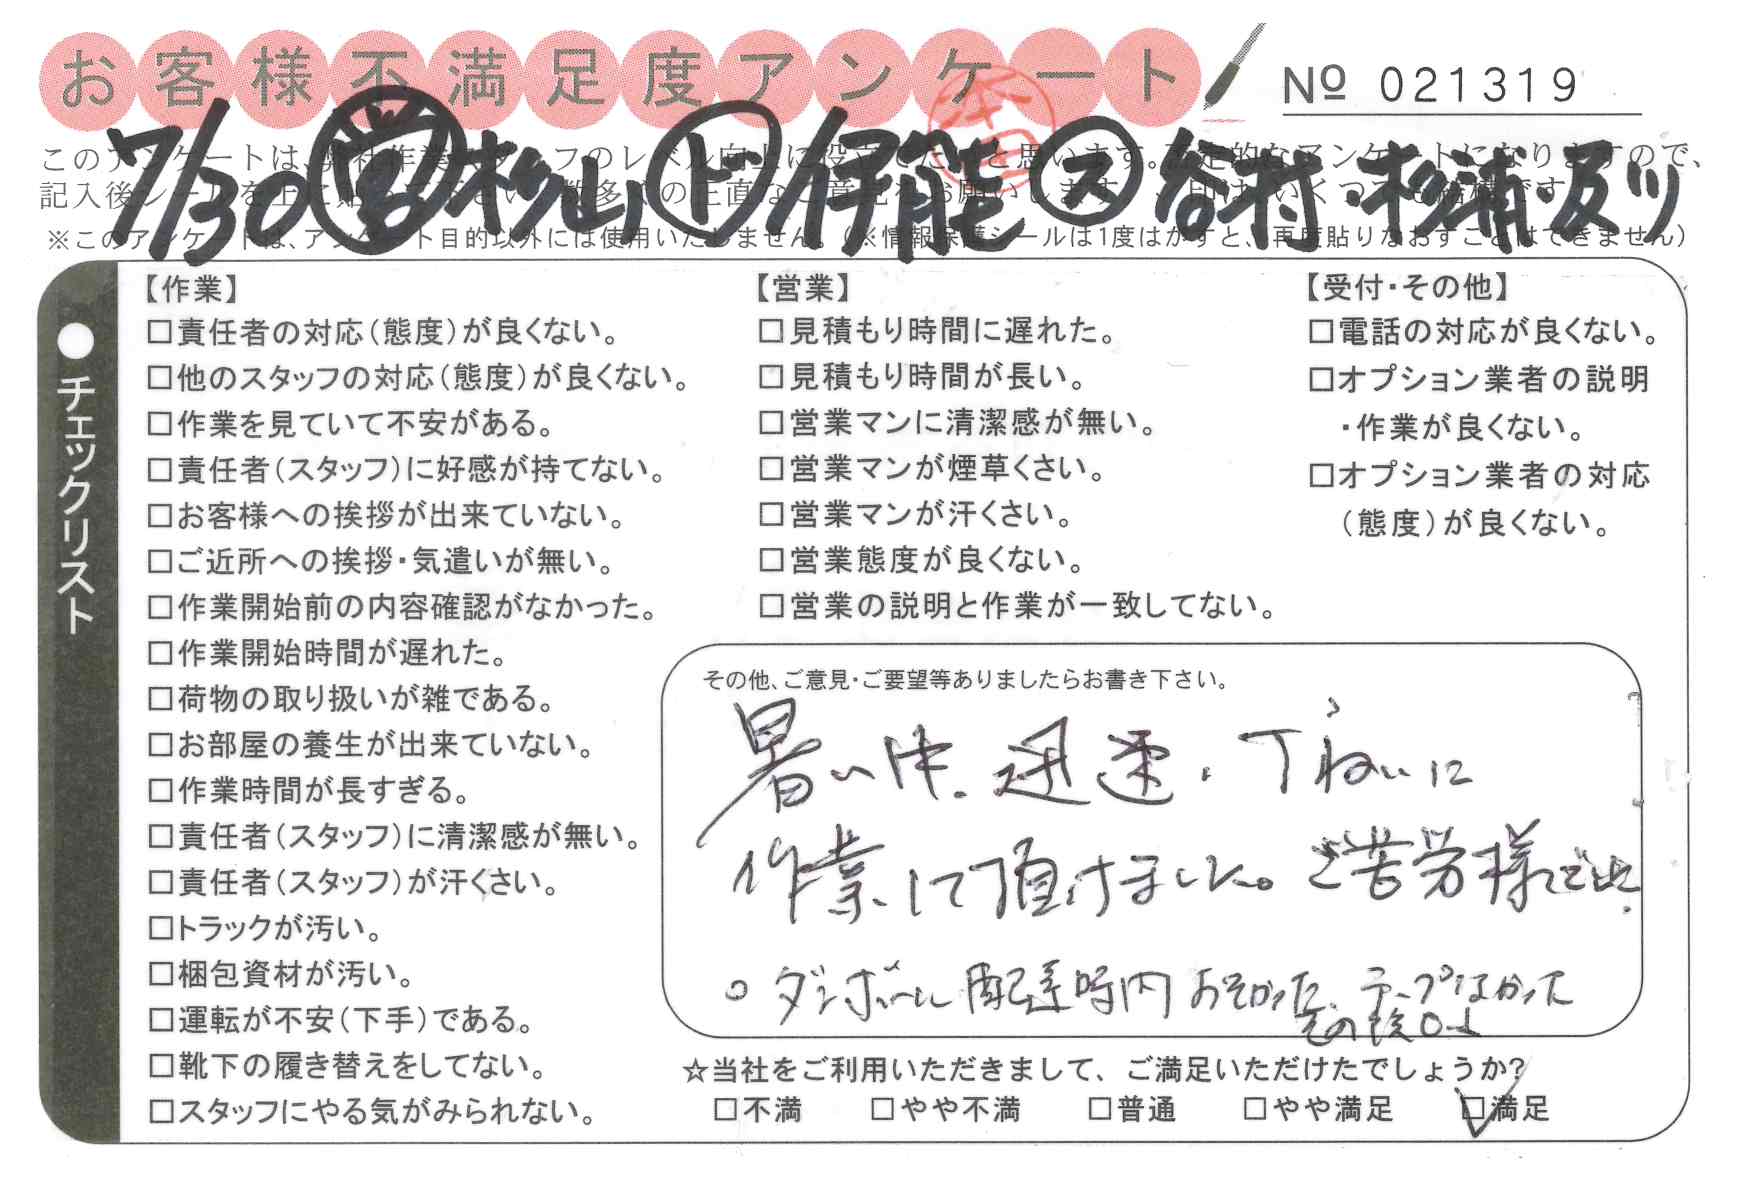 お客様不満足度アンケート
№ 021319
7/30 営 杉山 ド 伊能 ス 谷村・杉浦・反り
このアンケートは、
記入後シールを上に
※このアンケートは、アンケート目的以外には使用いたしません。(※情報保護シールは1度はがすと、再度貼りなおすことはできません)
●チェックリスト
【作業】
□責任者の対応(態度)が良くない。
□他のスタッフの対応(態度)が良くない。
□作業を見ていて不安がある。
□責任者(スタッフ)に好感が持てない。
□お客様への挨拶が出来ていない。
□ご近所への挨拶・気遣いが無い。
□作業開始前の内容確認がなかった。
□作業開始時間が遅れた。
□荷物の取り扱いが雑である。
□お部屋の養生が出来ていない。
□作業時間が長すぎる。
□責任者(スタッフ)に清潔感が無い。
□責任者(スタッフ)が汗くさい。
□トラックが汚い。
□梱包資材が汚い。
□運転が不安(下手)である。
□靴下の履き替えをしてない。
□スタッフにやる気がみられない。
【営業】
□見積もり時間に遅れた。
□見積もり時間が長い。
□営業マンに清潔感が無い。
□営業マンが煙草くさい。
□営業マンが汗くさい。
□営業態度が良くない。
□営業の説明と作業が一致してない。
【受付・その他】
□電話の対応が良くない。
□オプション業者の説明
・作業が良くない。
□オプション業者の対応
(態度)が良くない。
その他、ご意見・ご要望等ありましたらお書き下さい。
暑い中、迅速、丁ねいに
作業して頂けました。ご苦労様でした.
○ダンボール配達時内おそかった、テープなかった
その後
☆当社をご利用いただきまして、ご満足いただけたでしょうか?
□不満 □やや不満 □普通 □やや満足 □満足